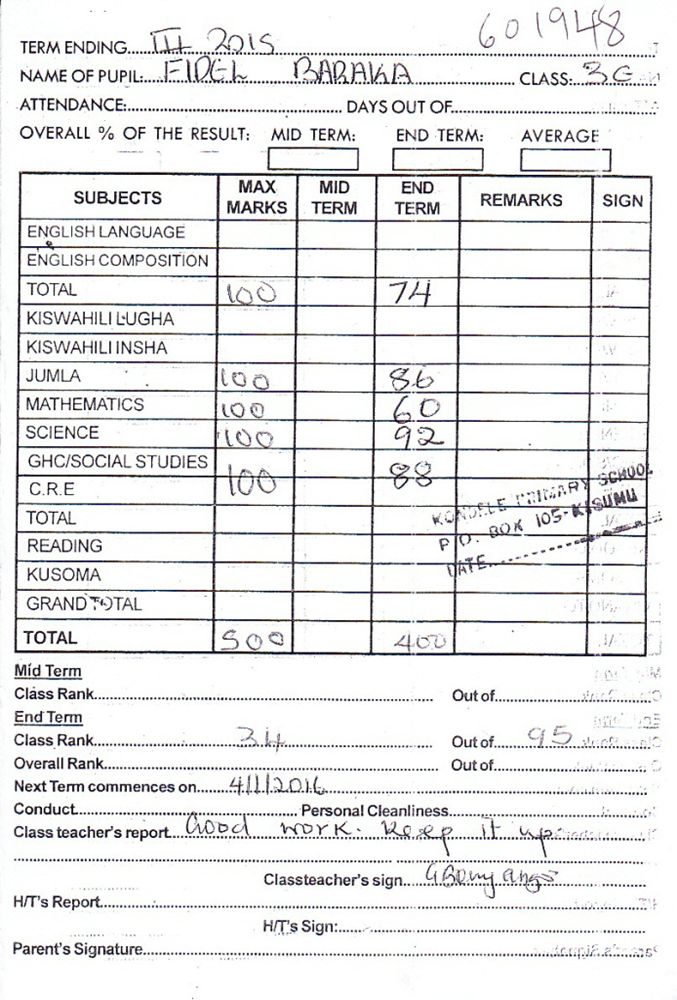 601948
TERM ENDING....III 2015
NAME OF PUPIL:....FIDEL BARAKA CLASS: 3G
ATTENDANCE:.... DAYS OUT OF....
OVERALL % OF THE RESULT: MID TERM: END TERM: AVERAGE
SUBJECTS MAX MARKS MID TERM END TERM REMARKS SIGN
ENGLISH LANGUAGE
ENGLISH COMPOSITION
TOTAL 100 74
KISWAHILI LUGHA
KISWAHILI INSHA
JUMLA 100 86
MATHEMATICS 100 60
SCIENCE 100 92
GHC/SOCIAL STUDIES
C.R.E 100 88
TOTAL
READING
KUSOMA
GRAND TOTAL
TOTAL 500 400
KONDELE PRIMARY SCHOOL
P. O. BOX 105-KISUMU
DATE....
Mid Term
Class Rank.... Out of....
End Term
Class Rank....34 Out of....95
Overall Rank.... Out of....
Next Term commences on....4/1/2016
Conduct.... Personal Cleanliness....
Class teacher's report....Good work. Keep it up
Classteacher's sign....
H/T's Report....
H/T's Sign:....
Parent's Signature....